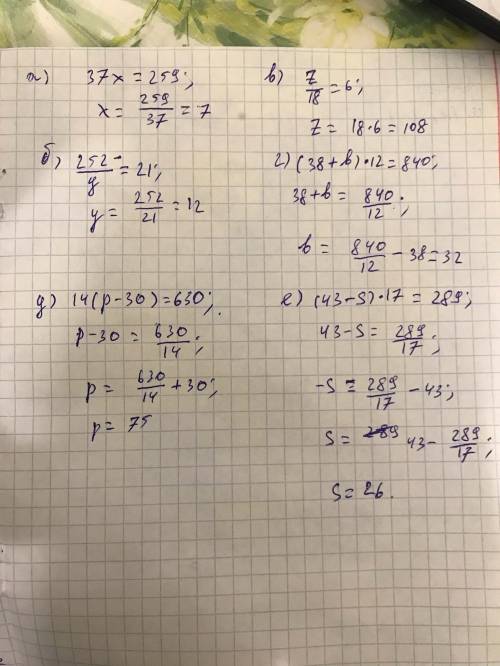 а) 37x = 259;
x = 259/37 = 7
б) 252/y = 21;
y = 252/21 = 12
в) z/18 = 6;
z = 18·6 = 108
г) (38+b)·12 = 840;
38+b = 840/12;
b = 840/12 - 38 = 32
д) 14(p-30) = 630;
p-30 = 630/14;
p = 630/14 + 30;
p = 75
е) (43-S)·17 = 289;
43-S = 289/17;
-S = 289/17 - 43;
S = 43 - 289/17;
S = 26.